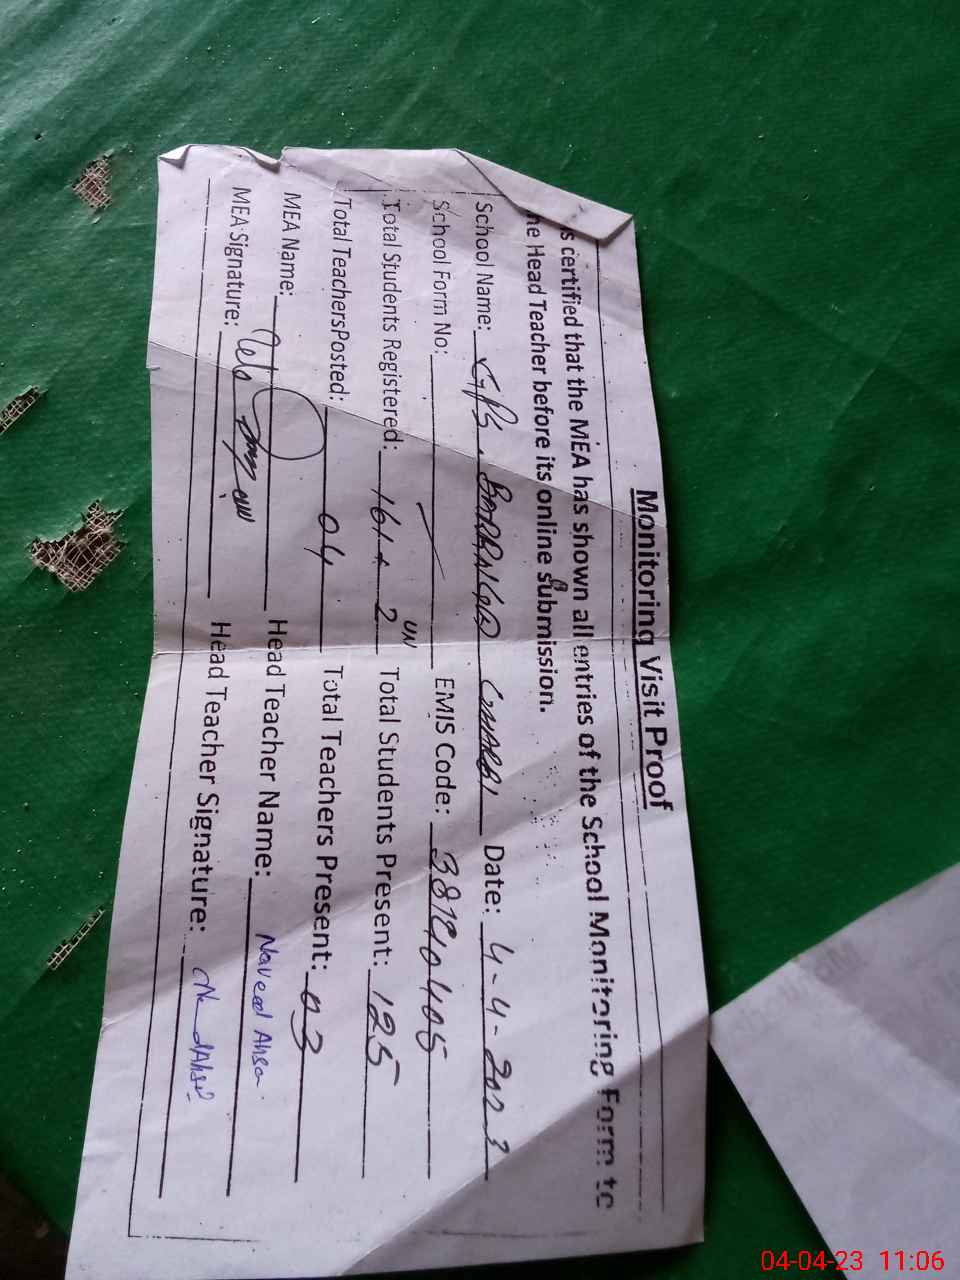 Monitoring Visit Proof
s certified that the MEA has shown all entries of the School Monitoring Form to
he Head Teacher before its online submission.
School Name: GPS, Date: 4-4-2023
School Form No: EMIS Code:
Total Students Registered: 161+2 UN Total Students Present: 125
Total TeachersPosted: 04 Total Teachers Present: 03
MEA Name: Head Teacher Name: Naveed Ahsa
MEA Signature: Head Teacher Signature:
04-04-23 11:06